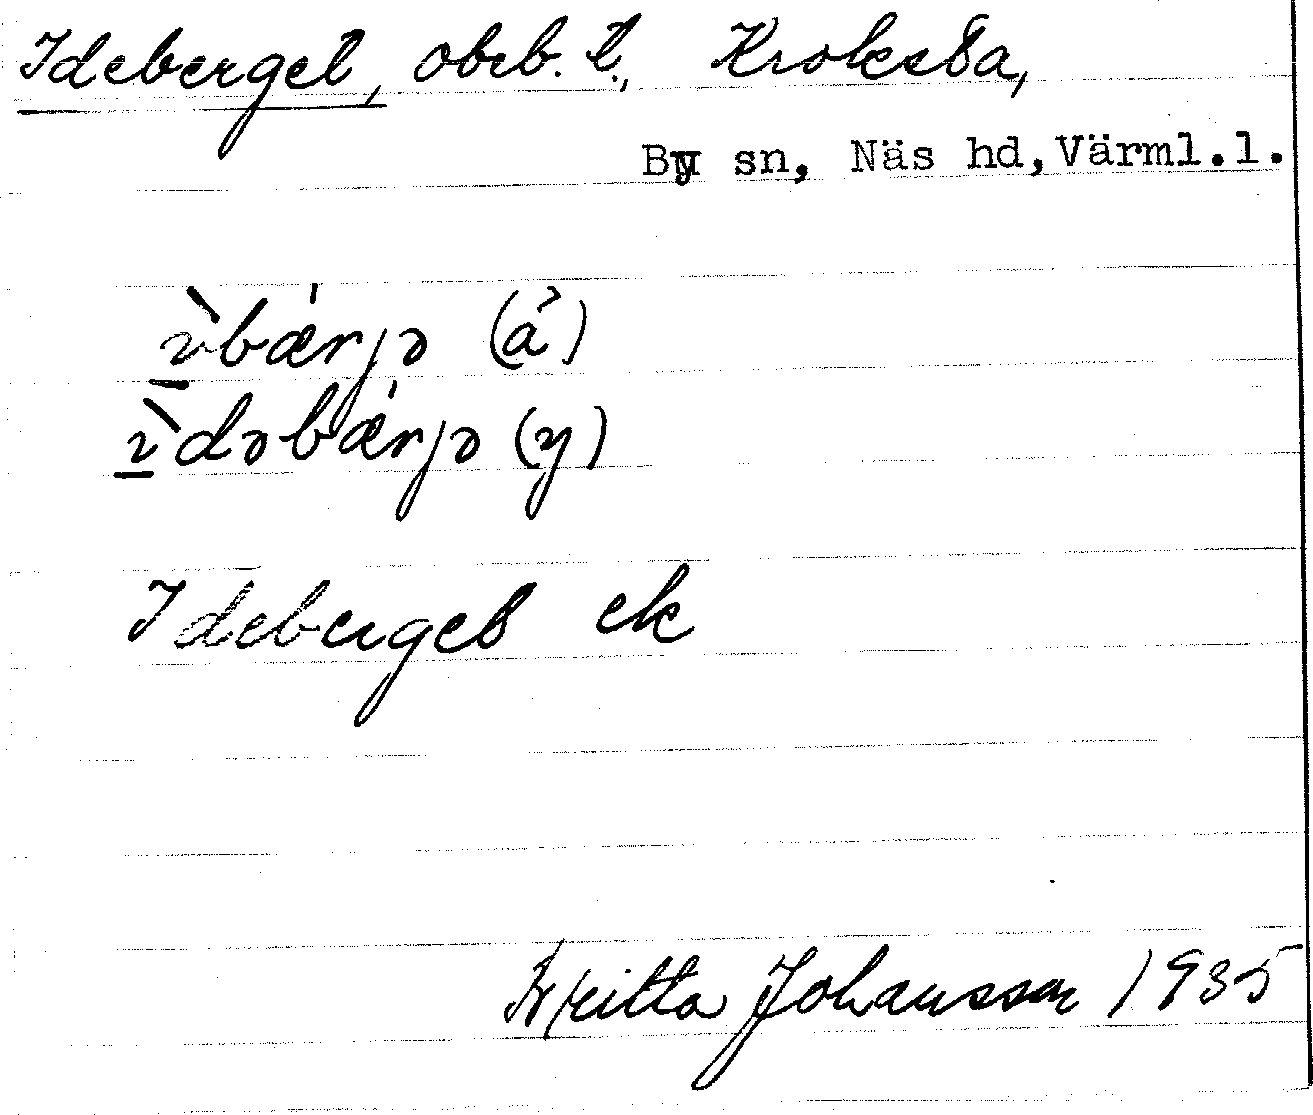 Ideberget, obeb. l., Krokeba,
By sn, Näs hd, Värml.l.
ìbærjə (å)
ìdəbærjə (y)
Ideberget ek
Britta Johansson 1935